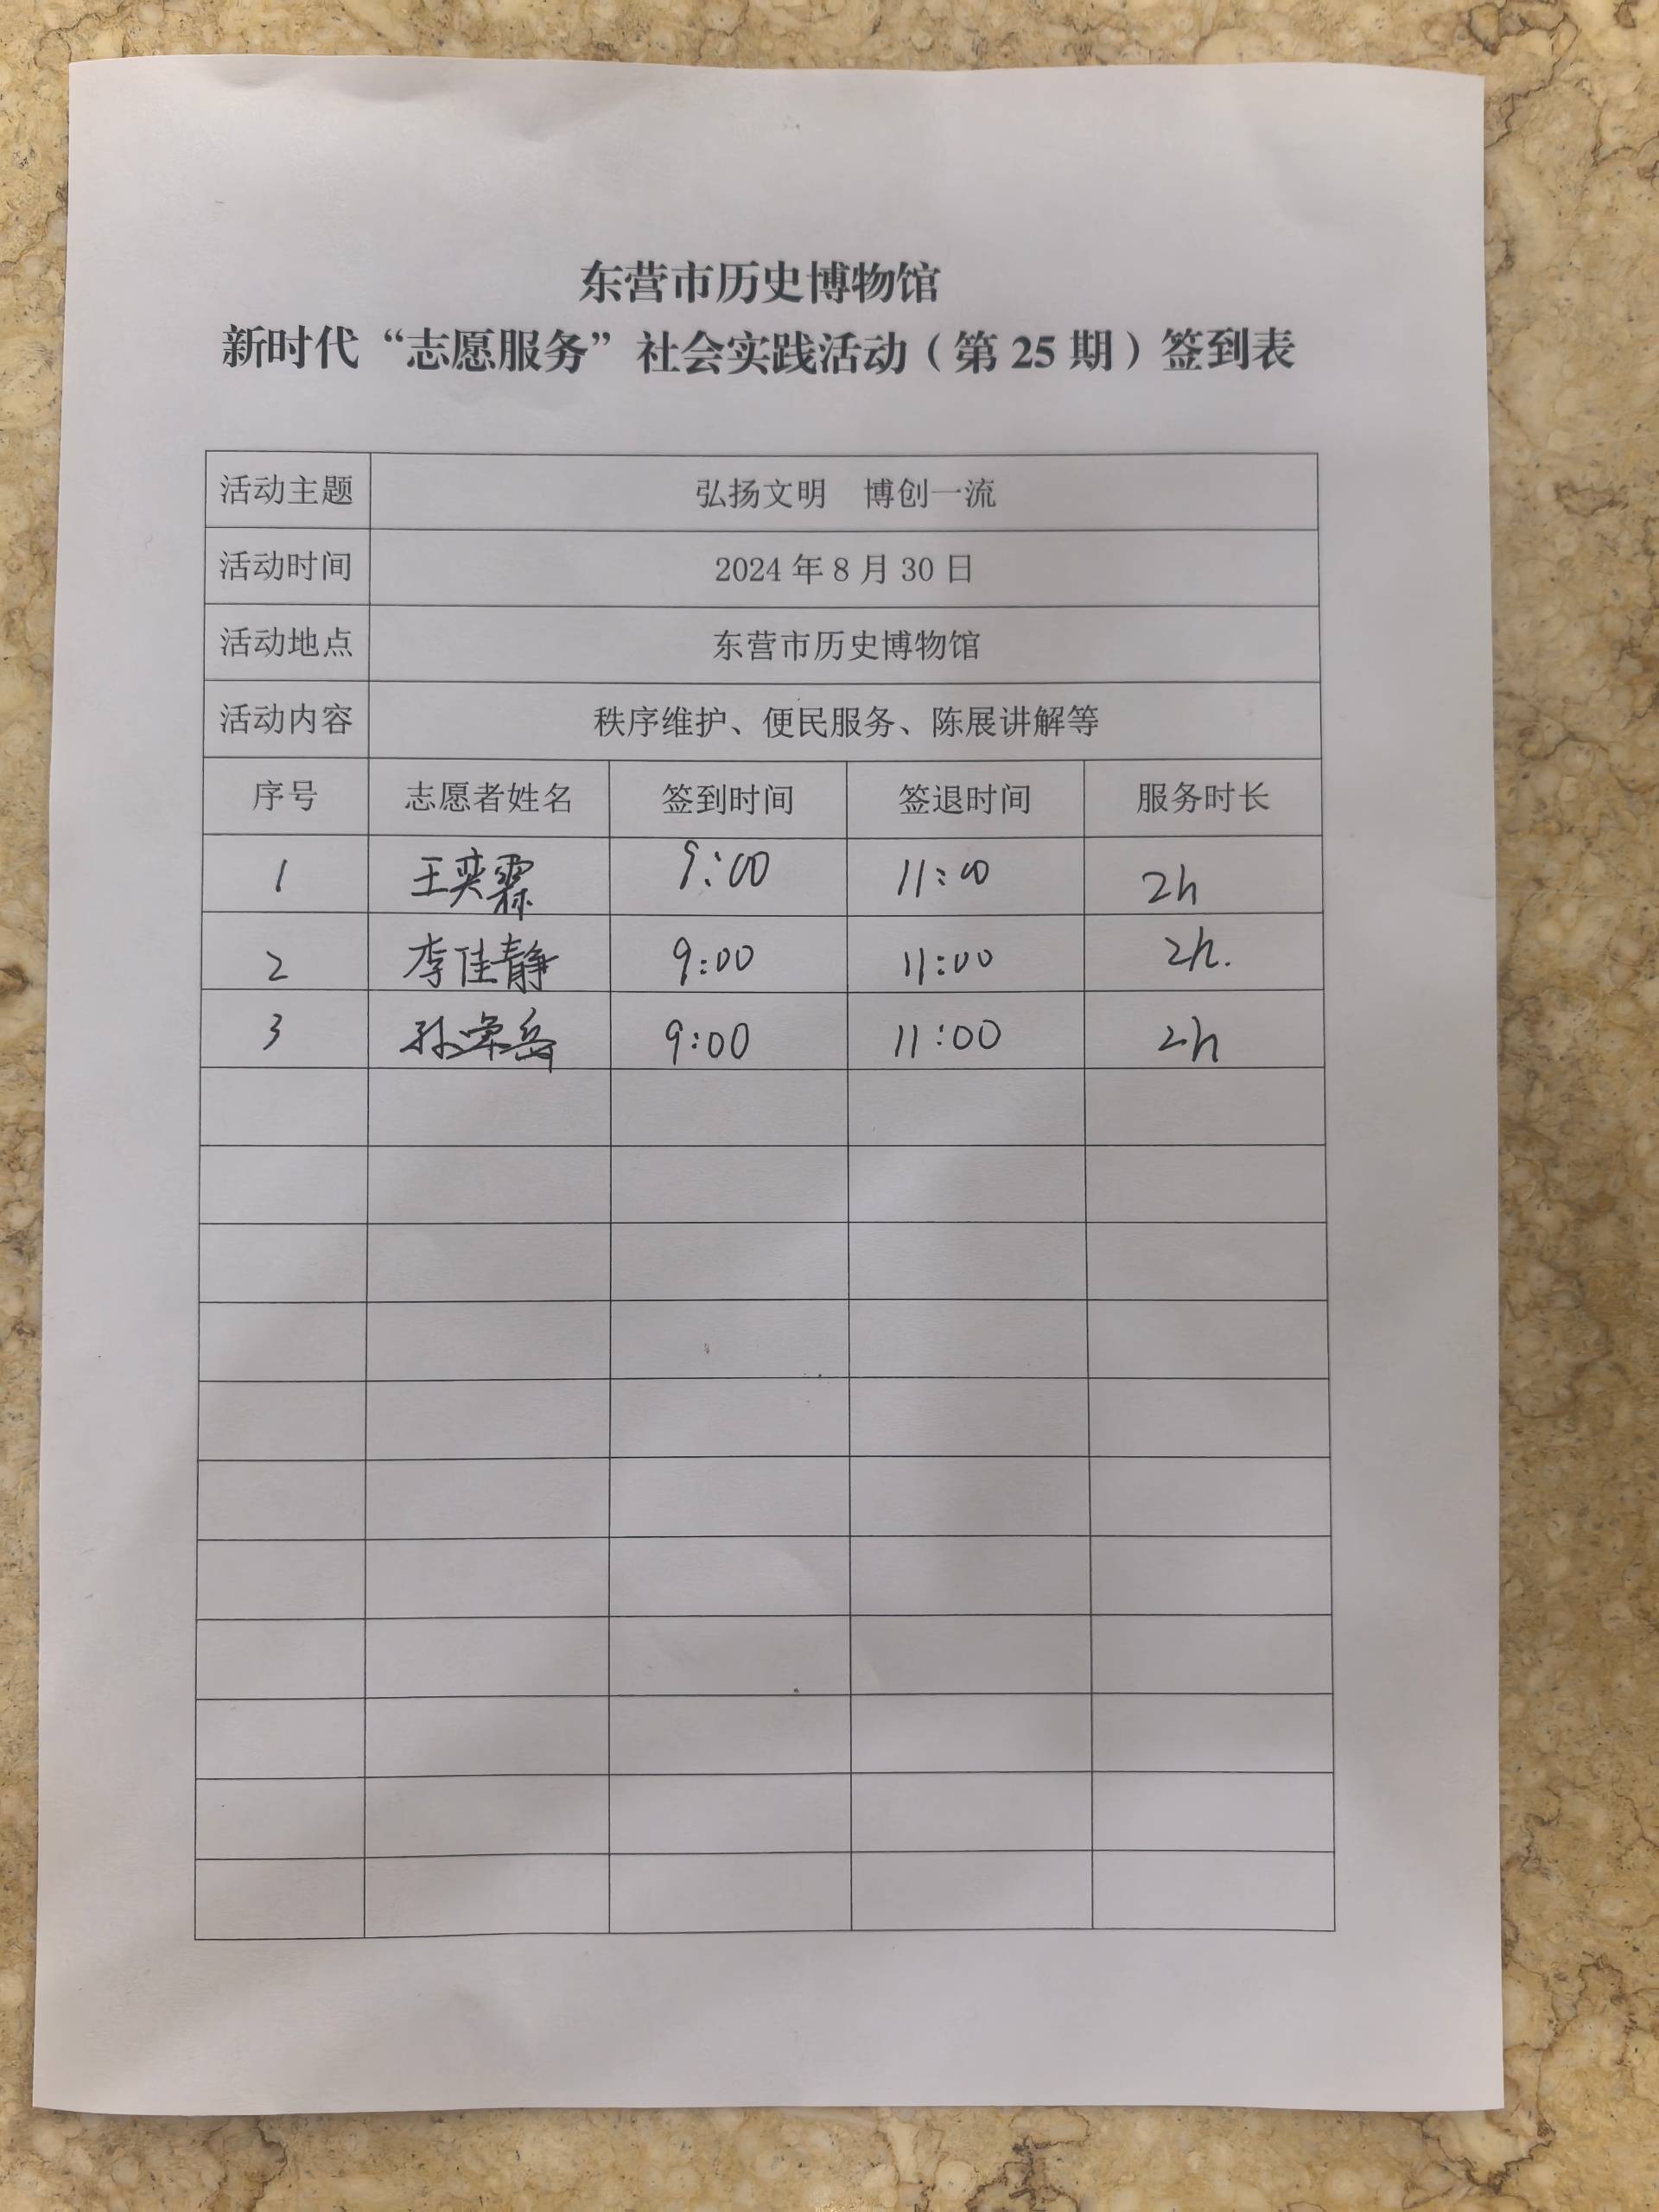 东营市历史博物馆
新时代“志愿服务”社会实践活动（第 25 期）签到表
活动主题 弘扬文明 博创一流
活动时间 2024 年 8 月 30 日
活动地点 东营市历史博物馆
活动内容 秩序维护、便民服务、陈展讲解等
序号 志愿者姓名 签到时间 签退时间 服务时长
1 王奕霖 9:00 11:00 2h
2 李佳静 9:00 11:00 2h.
3 9:00 11:00 2h